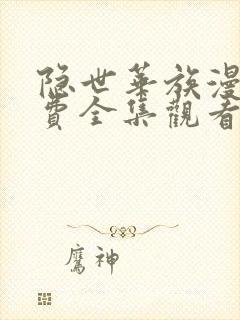 隐世华族漫
费全集觀看
鷹神